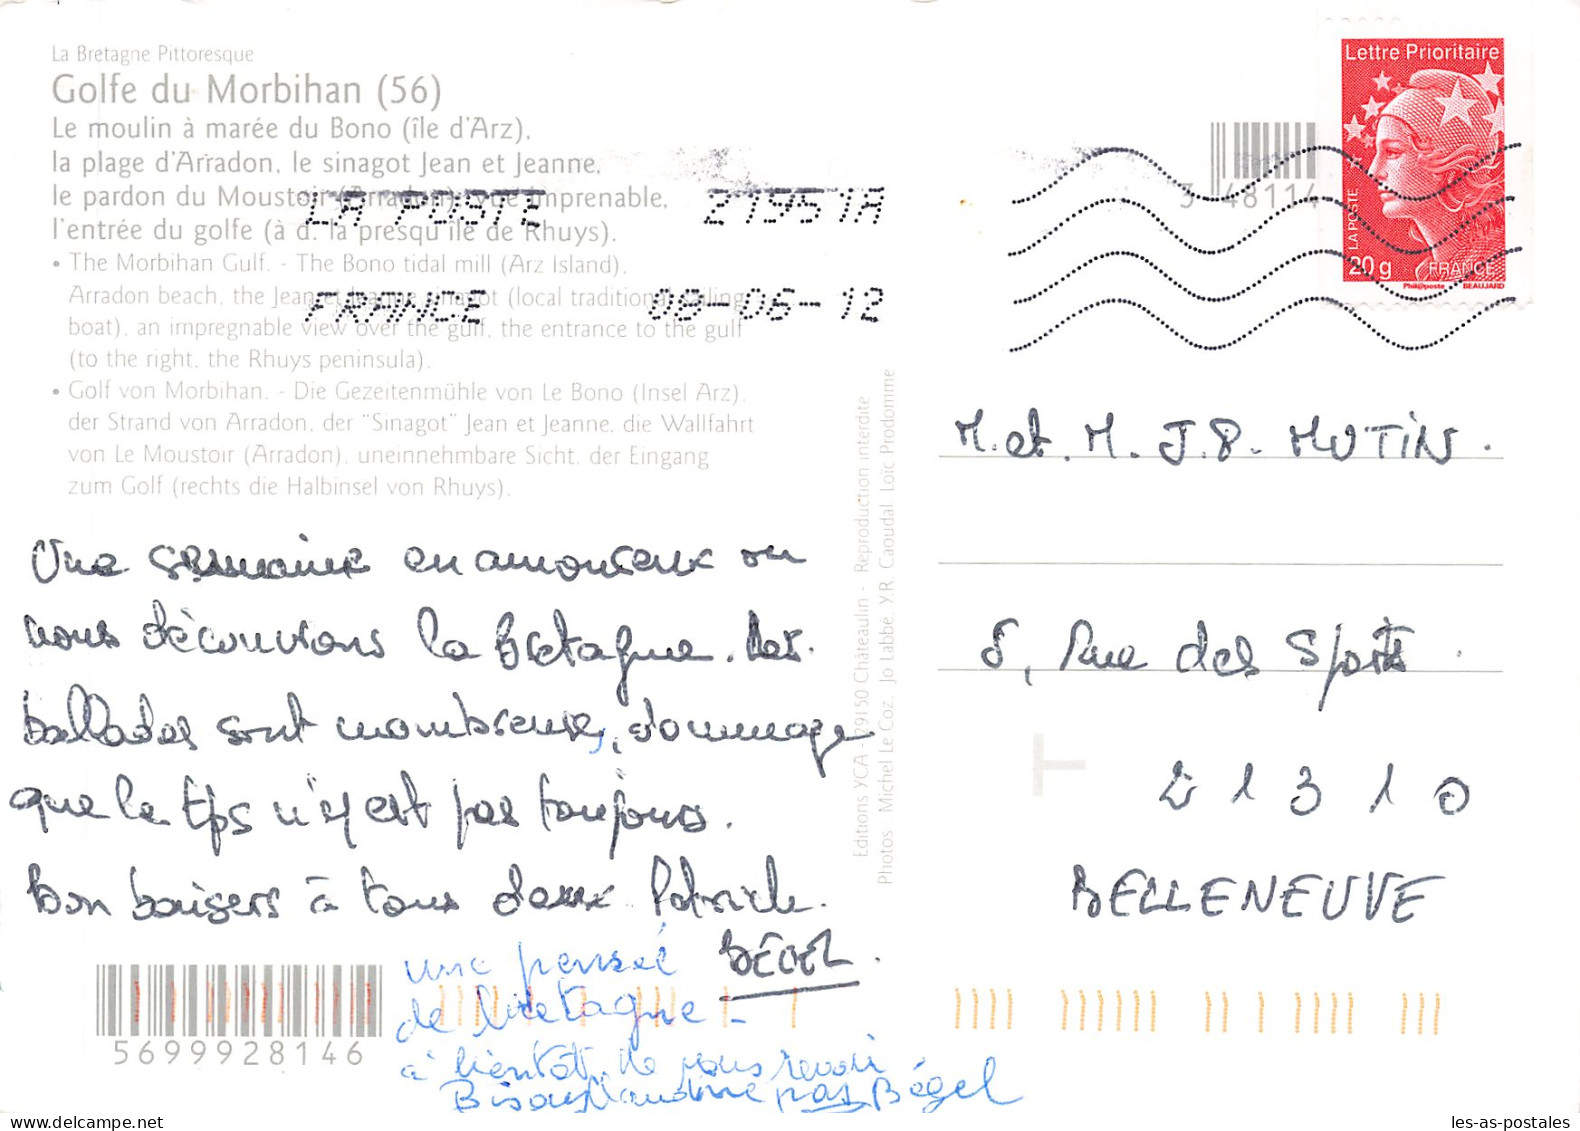 La Bretagne Pittoresque
Golfe du Morbihan (56)
Le moulin à marée du Bono (île d'Arz),
la plage d'Arradon, le sinagot Jean et Jeanne,
le pardon du Moustoir (Arradon), vue imprenable,
l'entrée du golfe (à d. la presqu'île de Rhuys).
• The Morbihan Gulf. - The Bono tidal mill (Arz Island),
Arradon beach, the Jean et Jeanne sinagot (local traditional sailing
boat), an impregnable view over the gulf, the entrance to the gulf
(to the right, the Rhuys peninsula).
• Golf von Morbihan. - Die Gezeitenmühle von Le Bono (Insel Arz),
der Strand von Arradon, der "Sinagot" Jean et Jeanne, die Wallfahrt
von Le Moustoir (Arradon), uneinnehmbare Sicht, der Eingang
zum Golf (rechts die Halbinsel von Rhuys).
LA POSTE 21951A
FRANCE 08-06-12
3 48114
Lettre Prioritaire
LA POSTE
20 g FRANCE
Phil@poste BEAUJARD
Editions YCA - 29150 Châteaulin - Reproduction interdite
Photos - Michel Le Coz, Jo Labbé, Y.R. Caoudal, Loïc Prodomme
Une semaine en amoureux ou
nous découvrons la Bretagne. Les
ballades sont nombreuses, dommage
que le tps n'y est pas toujours.
Bon baisers à tous deux Patrick.
BÉGEL.
une pensée
de bretagne -
à bientôt de vous revoir
Bisous pas Bégel
5699928146
M. et. M. J.P. MUTIN.
8, Rue des Sports.
21310
BELLENEUVE
les-as-postales